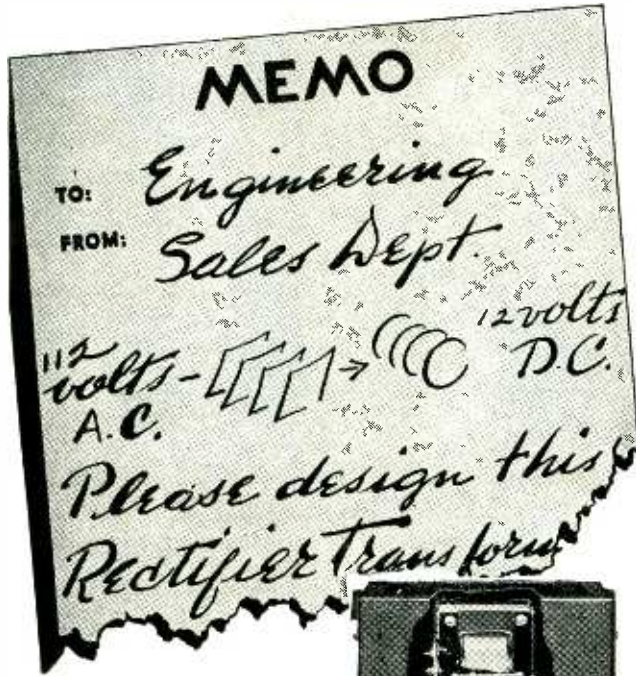 MEMO
TO: Engineering
FROM: Sales Dept.
112 volts - A.C. → 12 volts D.C.
Please design this
Rectifier Transform